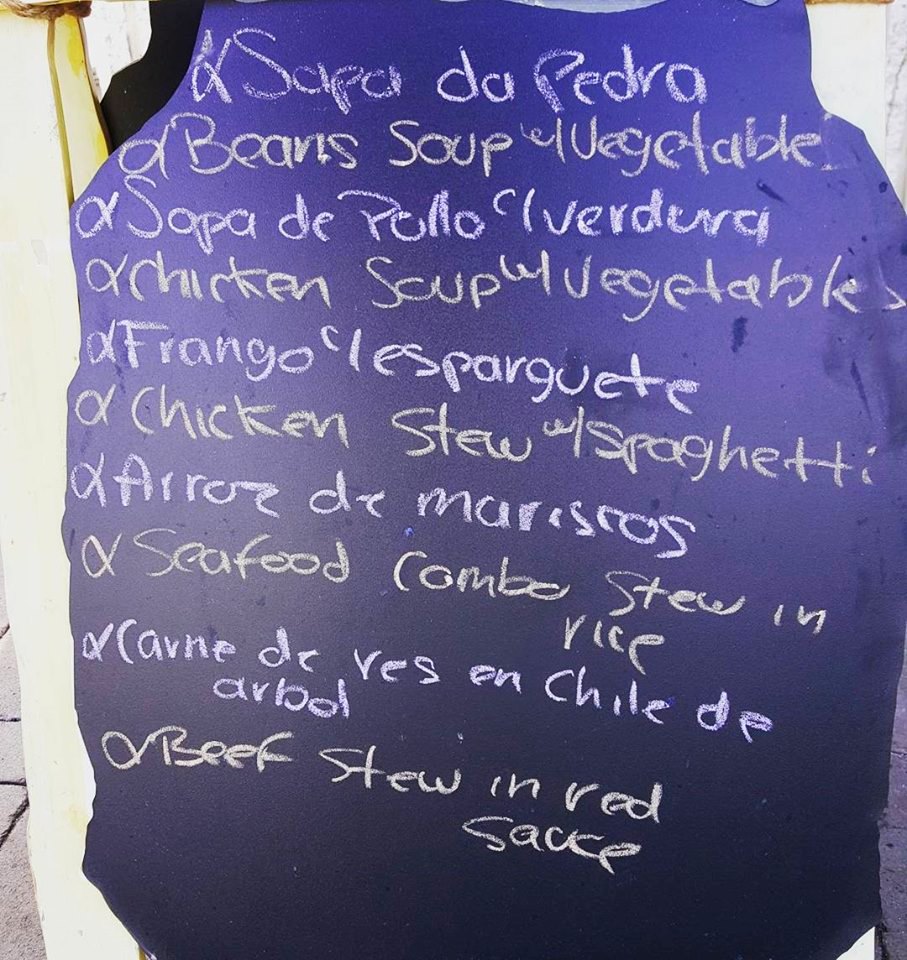 α Sopa da Pedra
α Beans Soup w/ Vegetable
α Sopa de Pollo c/ verdura
α Chicken Soup w/ Vegetables
α Frango c/ esparguete
α Chicken Stew w/ Spaghetti
α Arroz de mariscos
α Seafood Combo Stew in
rice
α Carne de res en Chile de
arbol
α Beef Stew in red
sauce